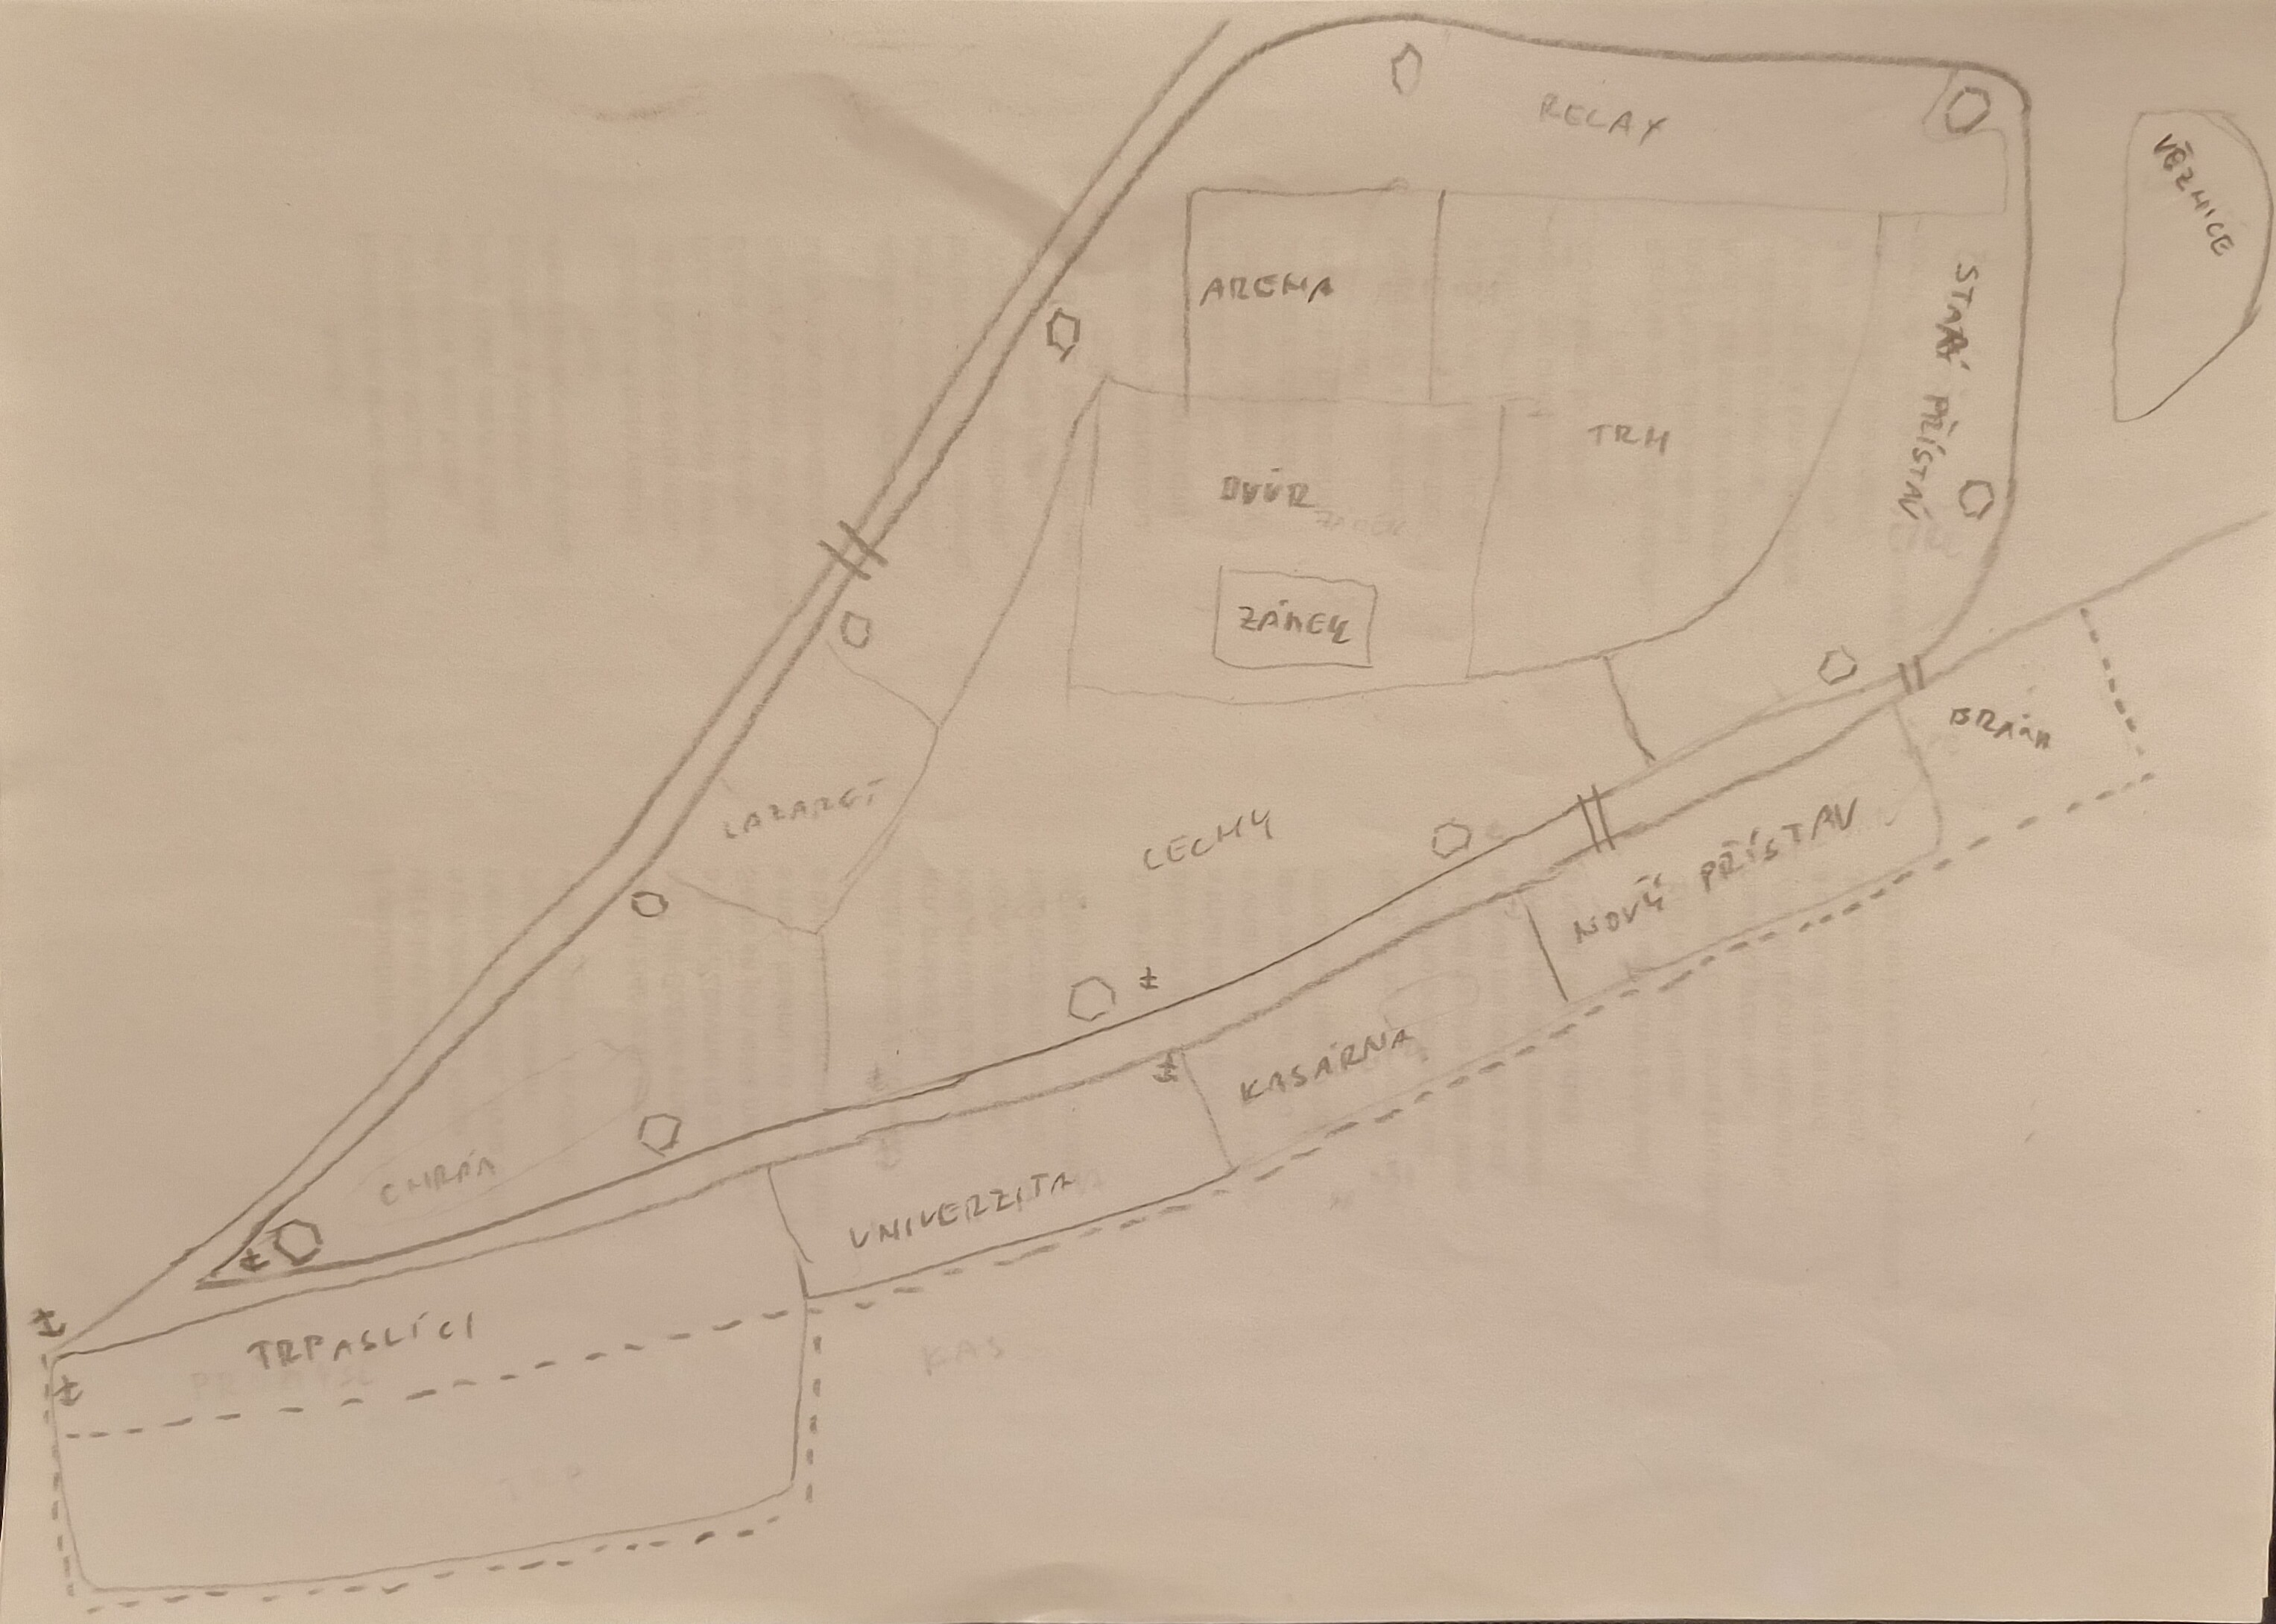 RELAX
VĚZNICE
ARENA
STARÝ PŘÍSTAV
TRH
DVŮR
ZÁMEK
ZÁMEK
BRÁN
LAZARET
CECHY
NOVÝ PŘÍSTAV
KASÁRNA
CHRÁM
UNIVERZITA
TRPASLÍCI
KAS